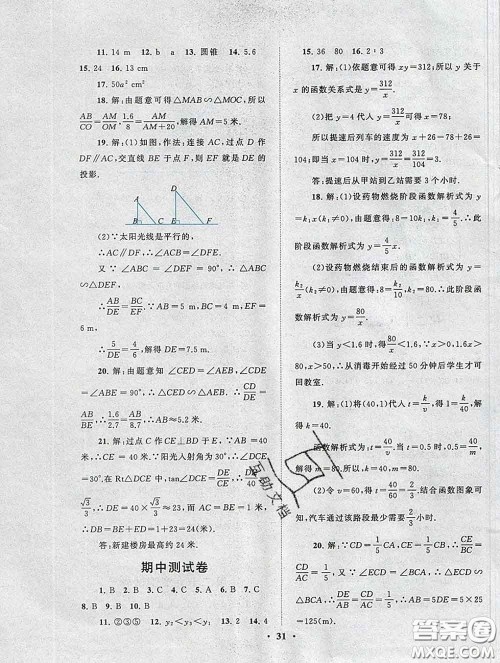 11. 14 m　12. b　a　13. 圆锥　14. 5.6
15. 24　16. 13 cm
17. 50a² cm²
18. 解:由题意可得△MAB∽△MOC,所以
AB/CO=AM/OM. 1.6/8=AM/(AM+20),解得 AM=5 米.
19. 解:(1)如图,作法:连接 AC,过点 D 作
DF∥AC,交直线 BE 于点 F,则 EF 就是 DE 的
投影.
A D
B C E F
(2)∵太阳光线是平行的,
∴AC∥DF,∴∠ACB=∠DFE.
又∵∠ABC=∠DEF=90°,∴△ABC∽
△DEF.∴AB/DE=BC/EF.∵AB=5 m,BC=4 m,EF=
6 m,∴5/DE=4/6,解得 DE=7.5 m.
20. 解:由题意知∠CED=∠AEB,∠CDE=
∠ABE=90°,∴△CED∽△AEB.∴CD/DE=
AB/BE,∴1.6/2.7=AB/8.7,∴AB≈5.2 米.
21. 解:过点 C 作 CE⊥BD 于 E,∴AB=40
米,∵阳光入射角为 30°,∴∠DCE=
30°,在 Rt△DCE 中,tan∠DCE=DE/CE.∴DE/40=
√3/3,∴DE=40×√3/3≈23,而 AC=BE=1 米.
∴DB=BE+DE=1+23=24(米).
答:新建楼房最高约 24 米.
期中测试卷
1. B　2. C　3. D　4. B　5. C　6. B　7. C
8. B　9. B　10. A
11. ②③⑤　12. y₂<y₁<y₃
15. 36　80　16. 2∶3
17. 解:(1)依题意可得 xy=312;所以 y 关于
x 的函数关系式是 y=312/x.
(2)把 y=4 代入 y=312/x,得 x=78;
所以提速后列车的速度为 x+26=78+26=
104;当 x=104 时,y=312/104=3.
答:提速后从甲站到乙站需要 3 个小时.
18. 解:(1)设药物燃烧阶段函数解析式为 y=
k₁x(k₁≠0),由题意得:8=10k₁,k₁=4/5.∴此阶
段函数解析式为 y=4/5x.
(2)设药物燃烧结束后的函数解析式为 y=
k₂/x(k₂≠0),由题意得:k₂/10=8,k₂=80.∴此阶段函
数解析式为 y=80/x.
(3)当 y<1.6 时,得80/x<1.6,∵x>0,1.6x>
80,x>50.∴从消毒开始经过 50 分钟后学生才可
回教室.
19. 解:(1)将(40,1)代入 t=k/v,得 1=k/40,解
得 k=40.
函数解析式为:t=40/v.当 t=0.5 时,0.5=40/m,
解得 m=80.所以,k=40,m=80.
(2)令 v=60,得 t=40/60=2/3.结合函数图象可
知,汽车通过该路段最少需要2/3小时.
20. 解:∵CD/CB=1/5,CE/CA=1/5,∴CD/CB=CE/CA,
又∵∠ECD=∠BCA,∴△ECD∽
△BCA,∴DE/AB=CD/CB=1/5,∴AB=5DE=5×25
=125(m).
互助文档
• 31 •
答案圈
MXQE.COM